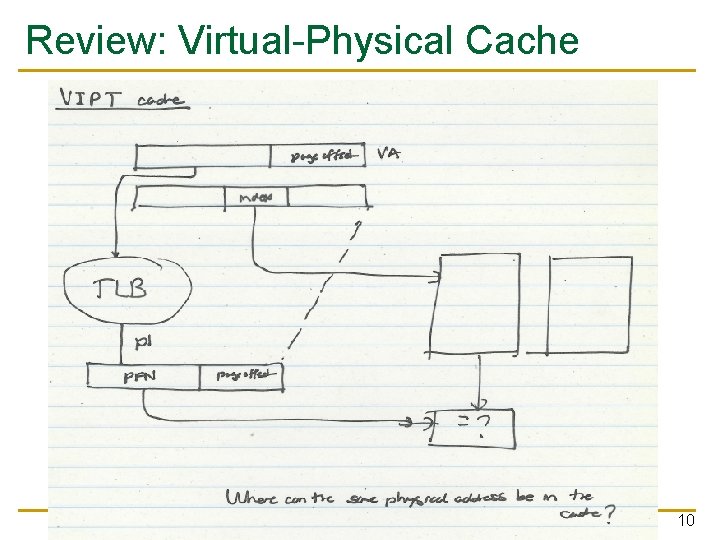 Review: Virtual-Physical Cache
VIPT cache
page offset VA
index
TLB
PFN
page offset
= ?
Where can the same physical address be in the
cache?
10